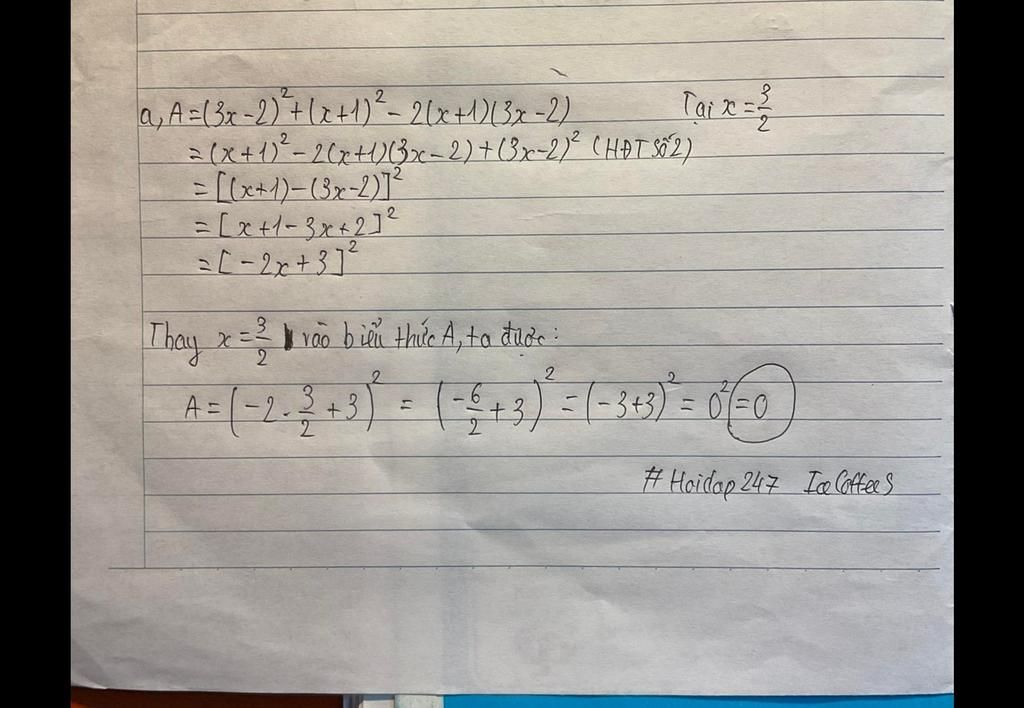 a, A=(3x-2)²+(x+1)²-2(x+1)(3x-2) Tại x=3/2
=(x+1)²-2(x+1)(3x-2)+(3x-2)² (HĐT số 2)
=[(x+1)-(3x-2)]²
=[x+1-3x+2]²
=[-2x+3]²
Thay x=3/2 vào biểu thức A, ta được:
A=(-2.3/2+3)²=(-6/2+3)²=(-3+3)²=0²=0
#Hoidap247 IceCoffeeS